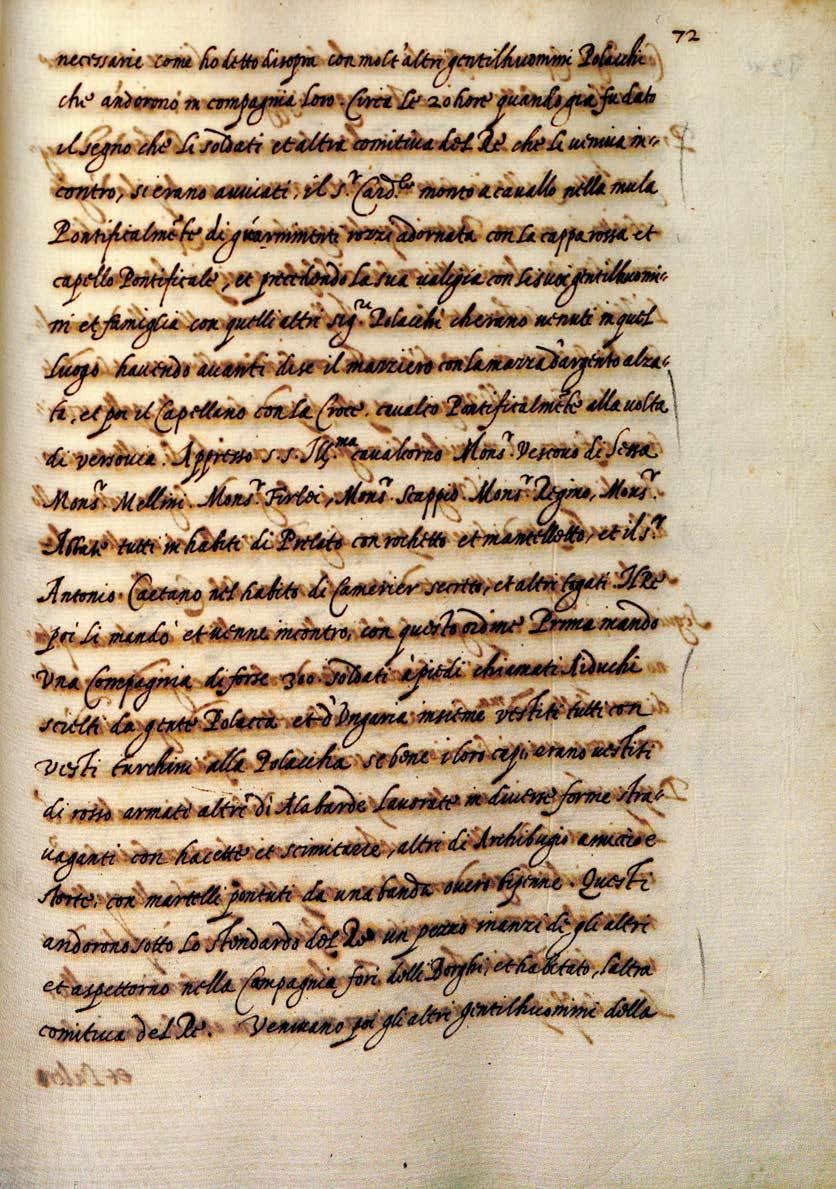 72
necessarie come ho detto di sopra con molt'altri gentilhuomini Polacchi
che andorono in compagnia loro. Circa le 20 hore quando già fu dato
il segno che li soldati et altra comitiva del Re che li veniva in=
contro, si erano avviati, il s.r Card.le montò a cavallo nella mula
Pontificalmēte di guarnimenti rozzi adornata con la cappa rossa et
capello Pontificale, et precedendo la sua valigia con li suoi gentilhuomi=
ni et famiglia con quelli altri sig.ri Polacchi cherano venuti in quel
luogo havendo avanti di se il mazziero con la mazza d'argento alza=
ta, et poi il Capellano con la Croce. cavalcò Pontificalmēte alla volta
di versovia. Appresso s.s. Ill.ma cavalcorno Mons.r Vescovo di
Mons.r Mellini. Mons.r Firlei, Mons.r Scappio. Mons.r Regino, Mons.r
Abbate tutti in habiti di Prelato con rochetto et mantelletto, et il s.r
Antonio Caetano nel habito di Camerier secreto, et altri togati. Il Re
poi li mandò et venne incontro, con questo ordine Prima mandò
Una Compagnia di forse 300 soldati à piedi chiamati Aiduchi
scielti da gente Polacca et d'Ungaria insieme vestiti tutti con
vesti turchini alla Polaccha se bene i loro capi erano vestiti
di rosso armati altri di Alabarde lavorate in diverse forme stra=
vaganti con hacette et scimitarre, altri di Archibugio a miccio e
storte, con martelli pontuti da una banda overo bipenne. Questi
andorono sotto lo stendardo del Re un pezzo inanzi de gli altri
et aspettorno nella Campagnia fori delli Borghi, et habitato, l'altra
comitiva del Re. Venivano poi gli altri gentilhuomini della